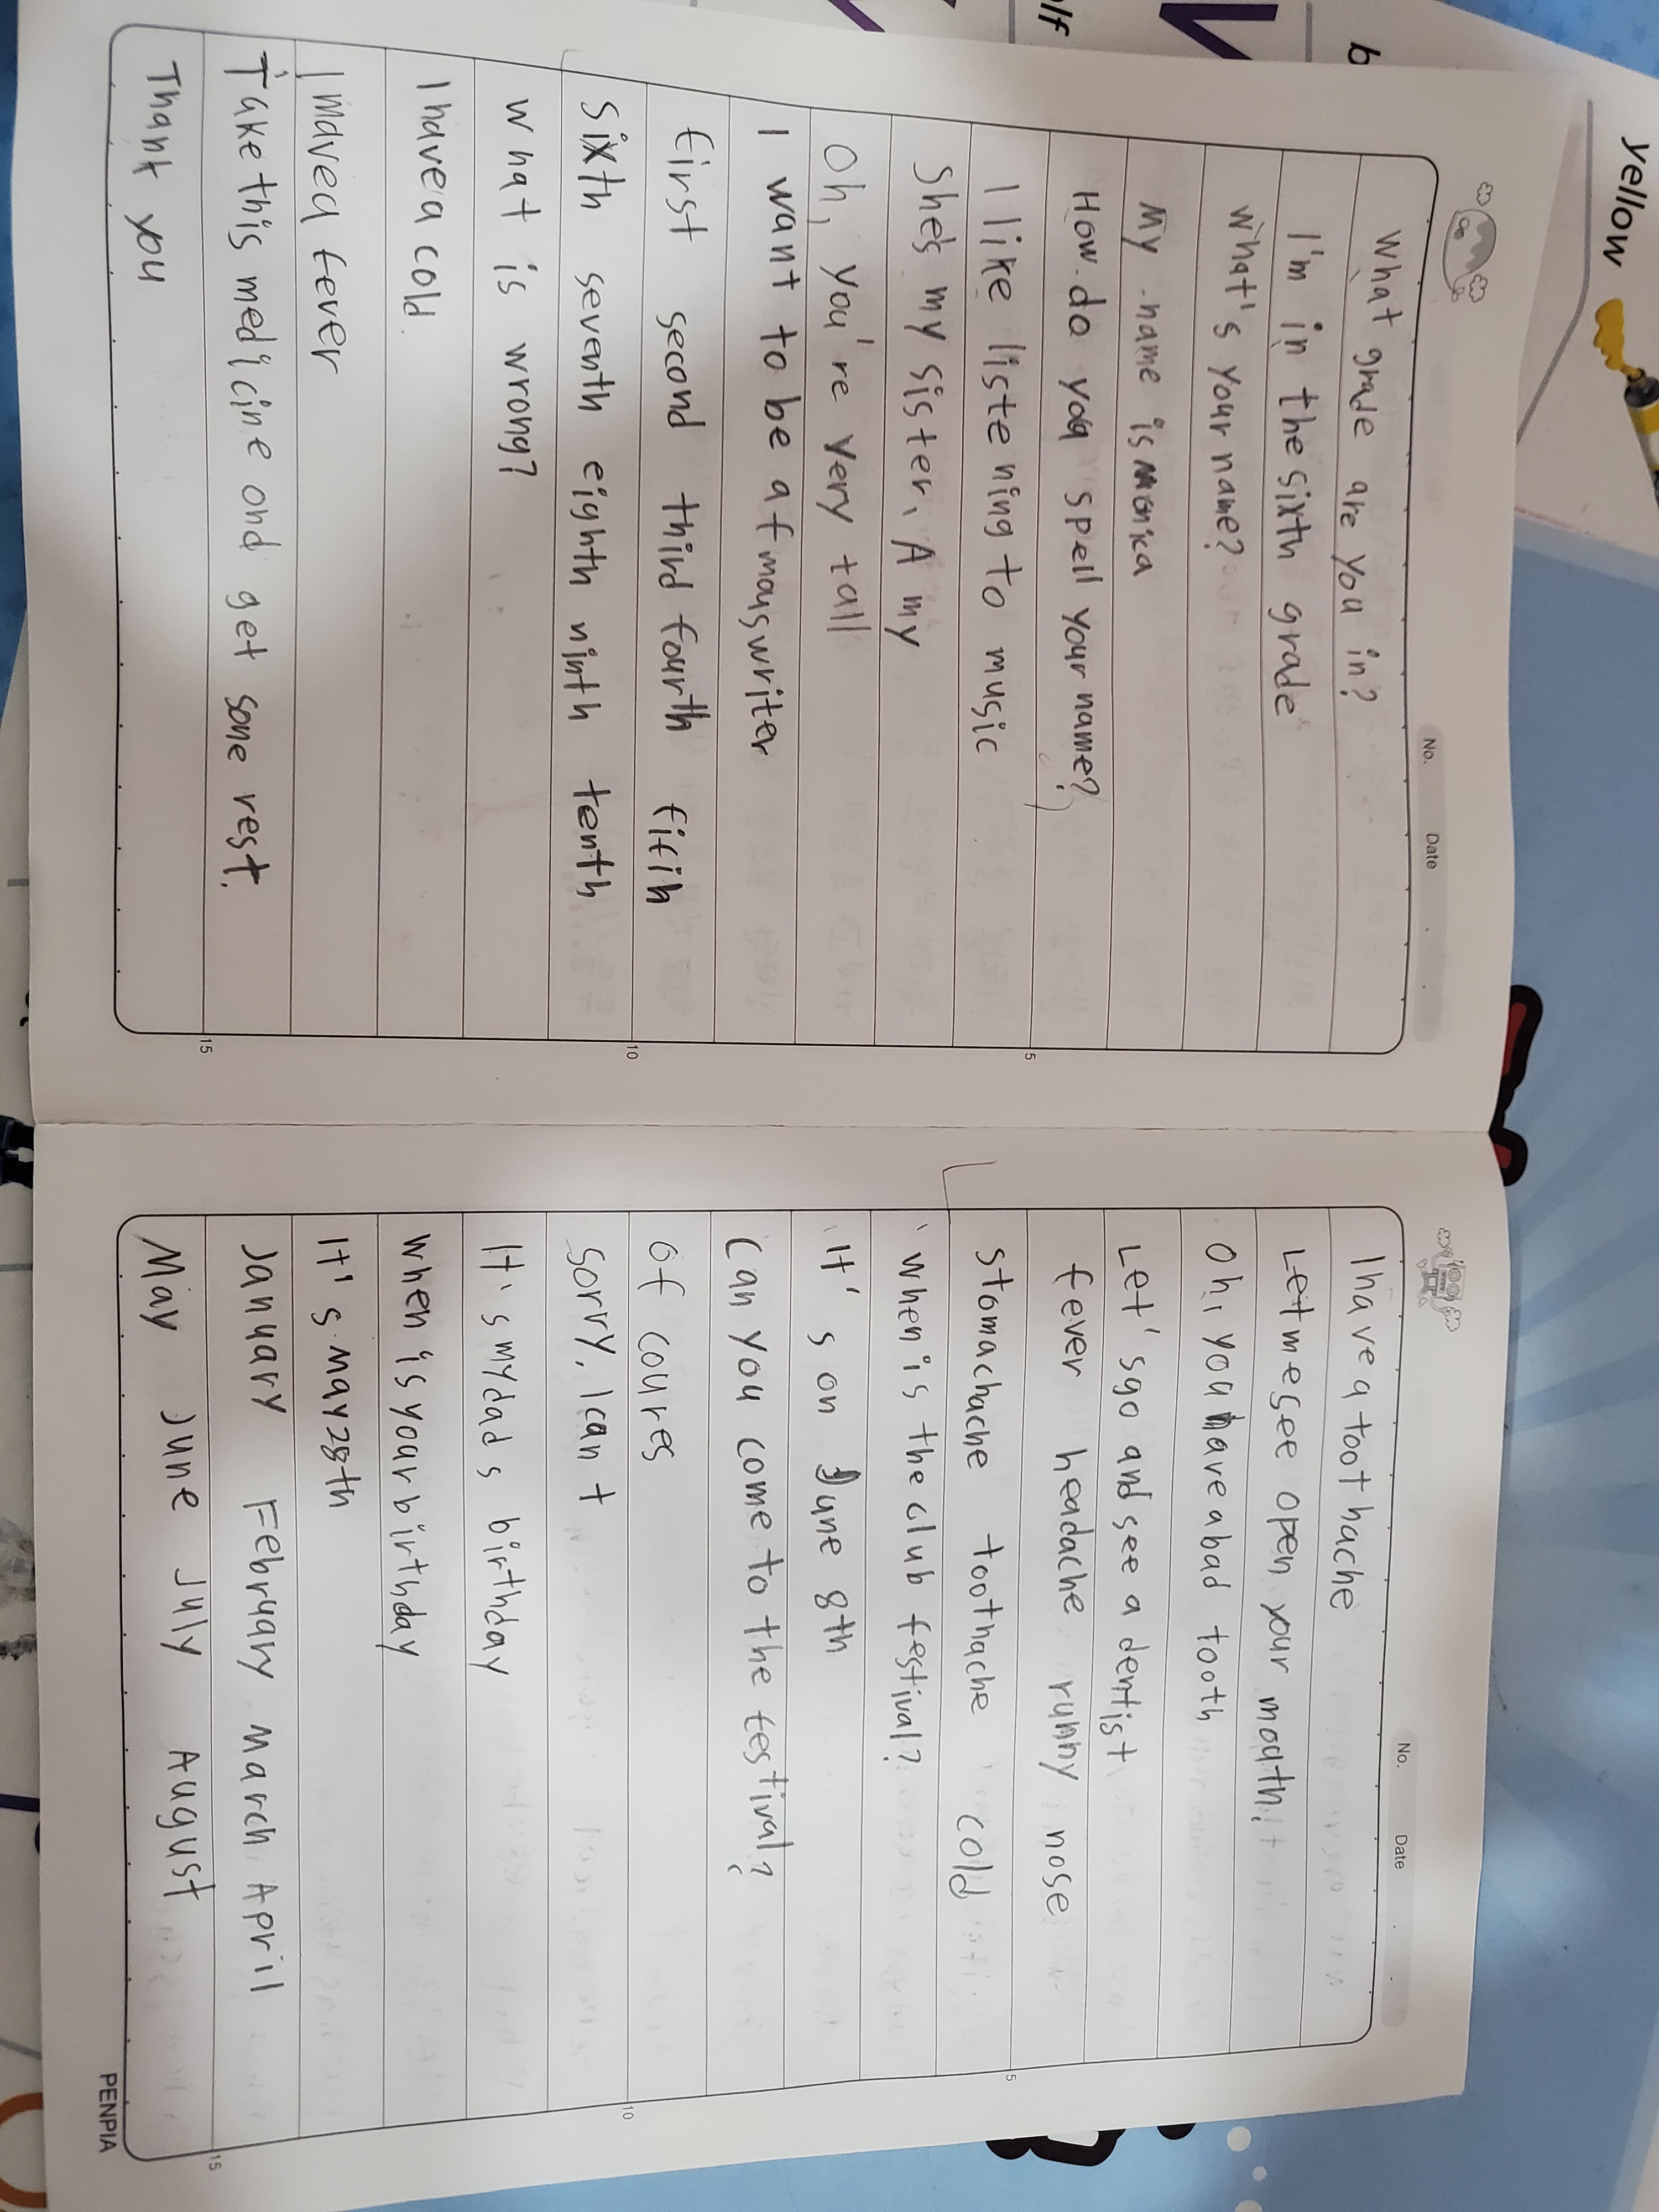 yellow
b
lf
No.
Date
What grade are you in?
I'm in the sixth grade
What's your name?
My name is Monica
How do you spell your name?
I like listening to music
5
She's my sister, A my
Oh, you're very tall
I want to be a fmous writer
first second third fourth fifih
10
sixth seventh eighth ninth tenth
What is wrong?
I have a cold.
I haved fever
Take this medicine ond get some rest.
15
Thank you
No.
Date
I have a toothache
Let me see open your mouth.
Oh, you have a bad tooth
Let's go and see a dentist
fever headache runny nose
5
stomachache toothache cold
When is the club festival?
It's on June 8th
Can you come to the festival?
Of coures
10
Sorry, I can t
It's my dad s birthday
When is your birthday
It's may 28th
January February march April
15
May June July August
PENPIA